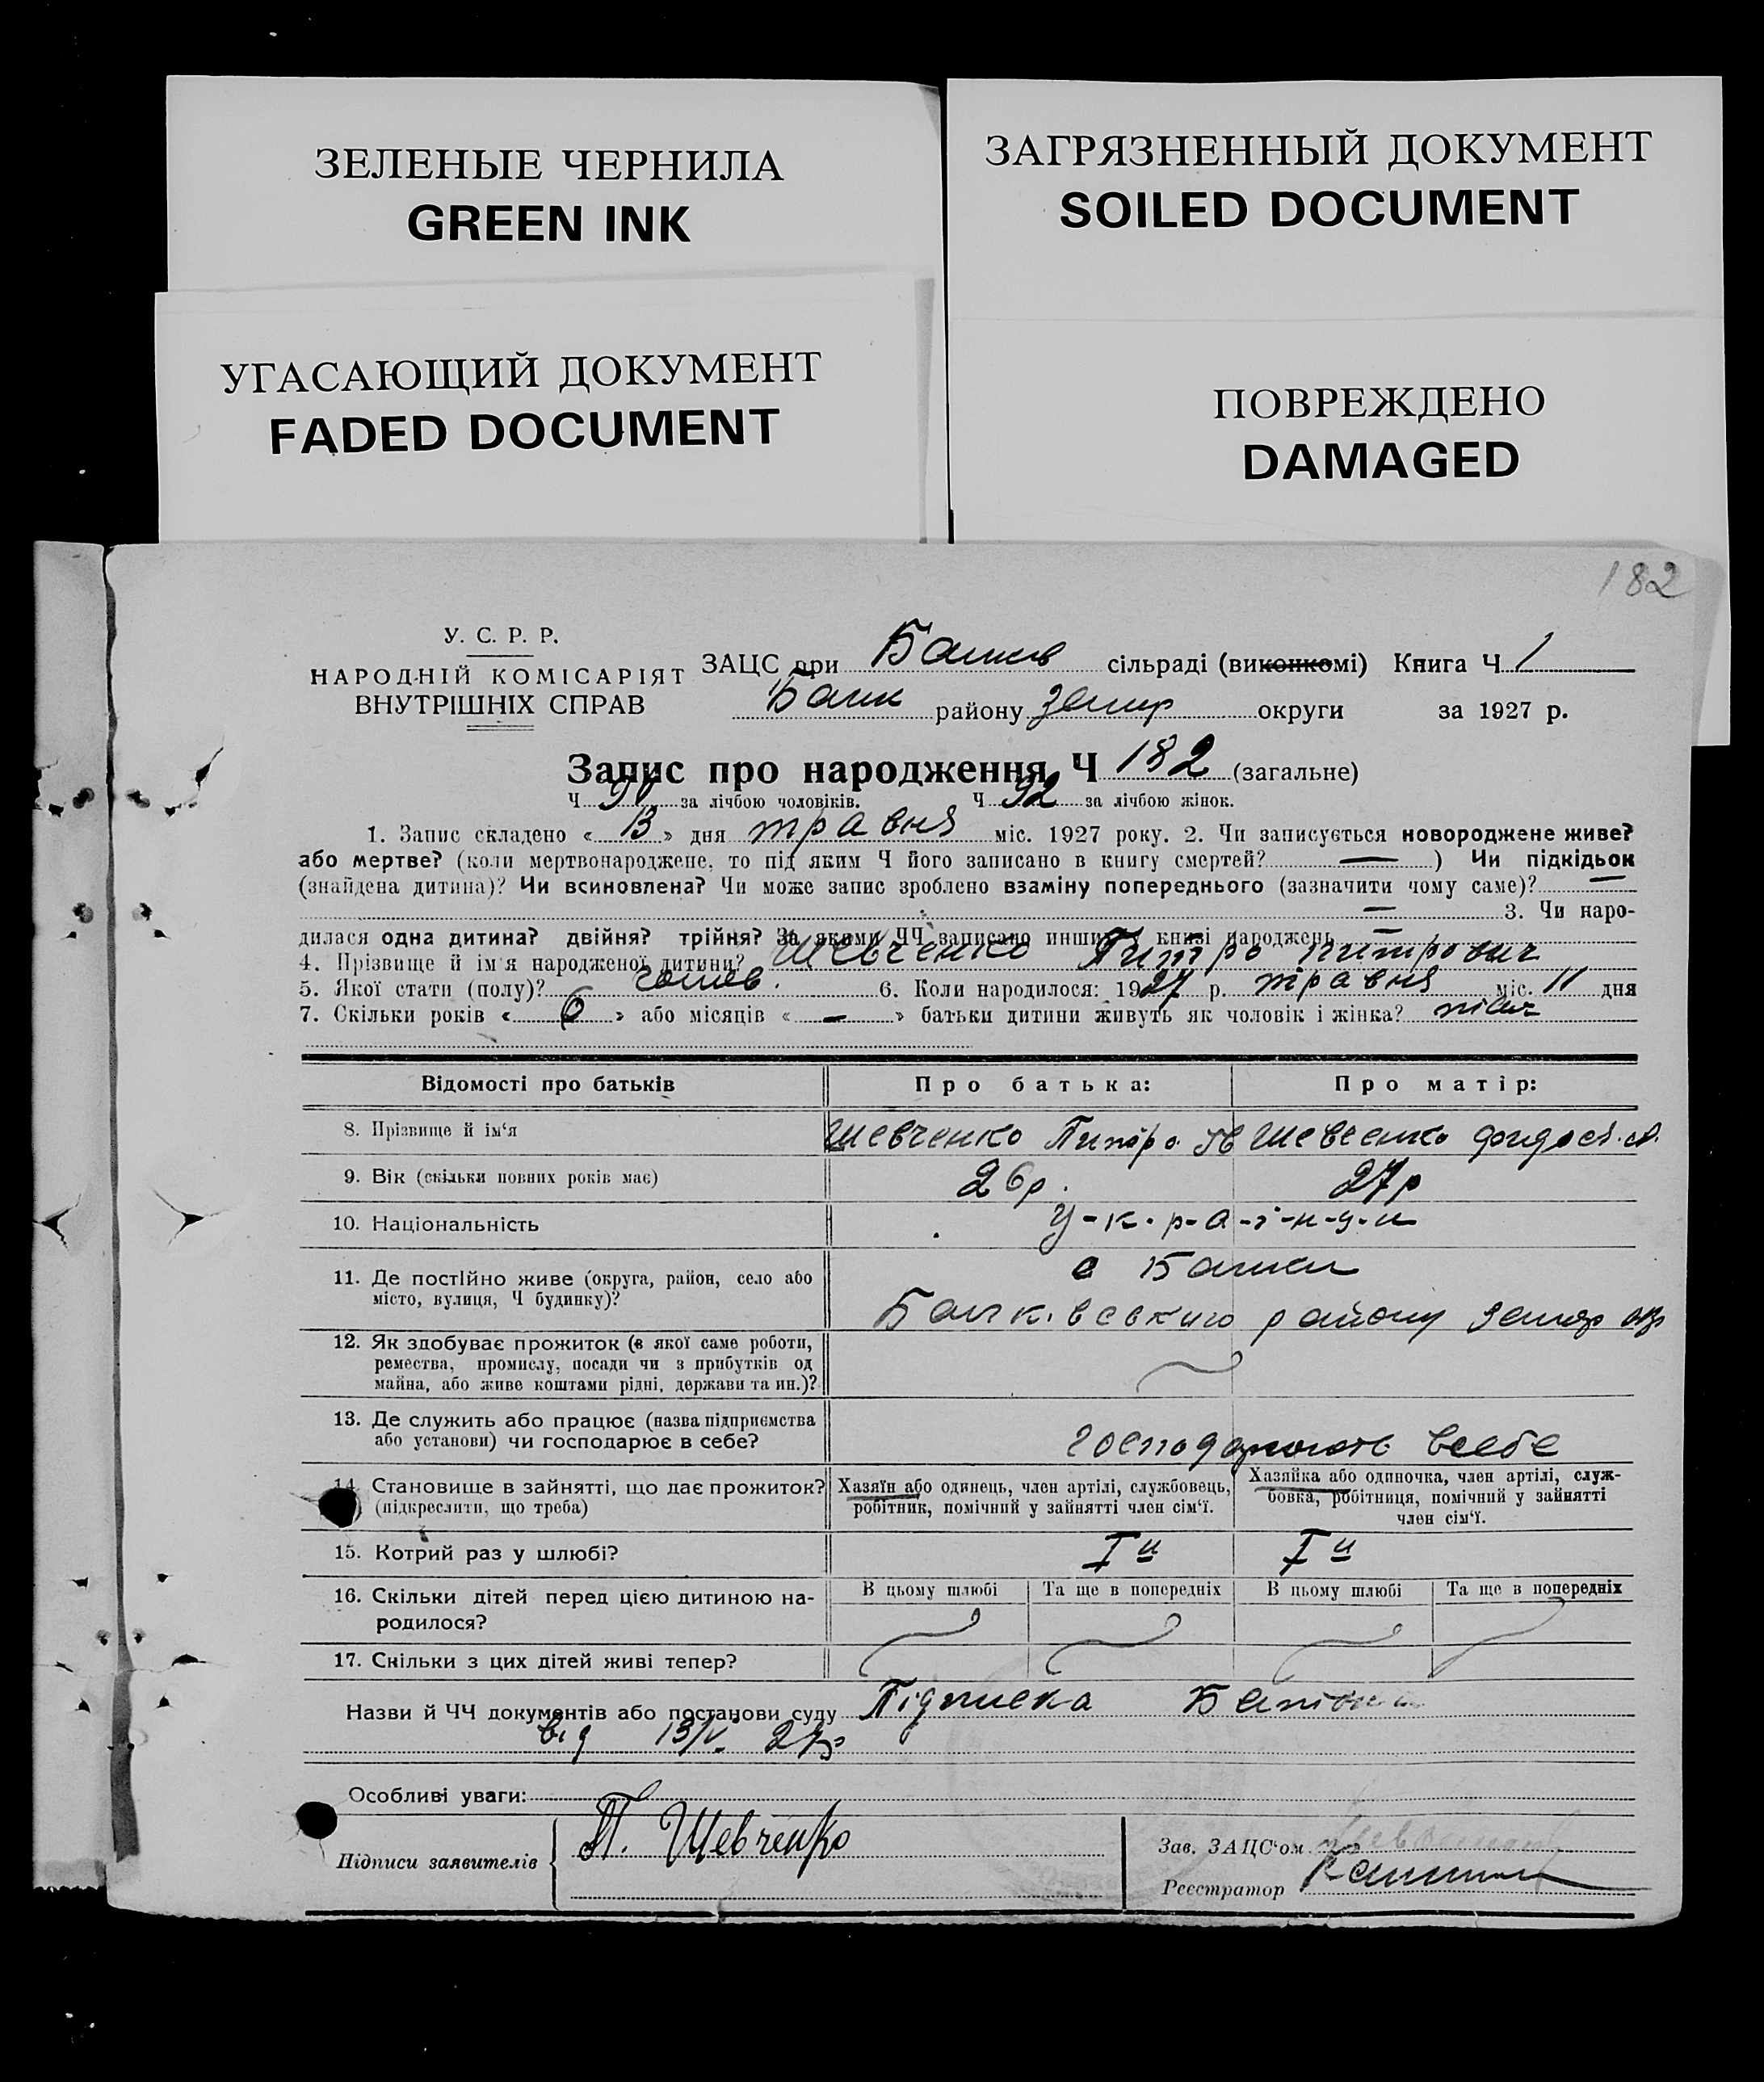 ЗЕЛЕНЫЕ ЧЕРНИЛА
GREEN INK
ЗАГРЯЗНЕННЫЙ ДОКУМЕНТ
SOILED DOCUMENT
УГАСАЮЩИЙ ДОКУМЕНТ
FADED DOCUMENT
ПОВРЕЖДЕНО
DAMAGED
182
У. С. Р. Р.
НАРОДНІЙ КОМІСАРІЯТ
ВНУТРІШНІХ СПРАВ
ЗАЦС при сільраді (виконкомі) Книга Ч 1
району округи за 1927 р.
Запис про народження Ч 182 (загальне)
Ч 90 за лічбою чоловіків. Ч 92 за лічбою жінок.
1. Запис складено « 13 » дня травня міс. 1927 року. 2. Чи записується новороджене живе?
або мертве? (коли мертвонароджене, то під яким Ч його записано в книгу смертей? — ) Чи підкідьок
(знайдена дитина)? Чи всиновлена? Чи може запис зроблено взаміну попереднього (зазначити чому саме)? —
— 3. Чи наро-
дилася одна дитина? двійня? трійня? За якими ЧЧ записано инших в книзі народжень —
4. Прізвище й ім'я народженої дитини? Шевченко Питро питрович
5. Якої стати (полу)? чолов. 6. Коли народилося: 1927 р. травня міс. 11 дня
7. Скільки років « 6 » або місяців « – » батьки дитини живуть як чоловік і жінка?
Відомості про батьків Про батька: Про матір:
8. Прізвище й ім'я Шевченко Питро Ів Шевченко
9. Вік (скільки повних років має) 26р. 27р
10. Національність у-к-р-а-ї-н-ц-и
11. Де постійно живе (округа, район, село або
місто, вулиця, Ч будинку)?
району
12. Як здобуває прожиток (в якої саме роботи,
ремества, промислу, посади чи з прибутків од
майна, або живе коштами рідні, держави та ин.)?
13. Де служить або працює (назва підприємства
або установи) чи господарює в себе? господарюють всебе
14. Становище в зайнятті, що дає прожиток?
(підкреслити, що треба)
Хазяїн або одинець, член артілі, службовець,
робітник, помічний у зайнятті член сім'ї.
Хазяйка або одиночка, член артілі, служ-
бовка, робітниця, помічний у зайнятті
член сім'ї.
15. Котрий раз у шлюбі? І й І й
16. Скільки дітей перед цією дитиною на-
родилося?
В цьому шлюбі Та ще в попередніх В цьому шлюбі Та ще в попередніх
17. Скільки з цих дітей живі тепер?
Назви й ЧЧ документів або постанови суду Підписка
від 13/V 27р
Особливі уваги:
Підписи заявителів П. Шевченко
Зав. ЗАЦС'ом
Реєстратор